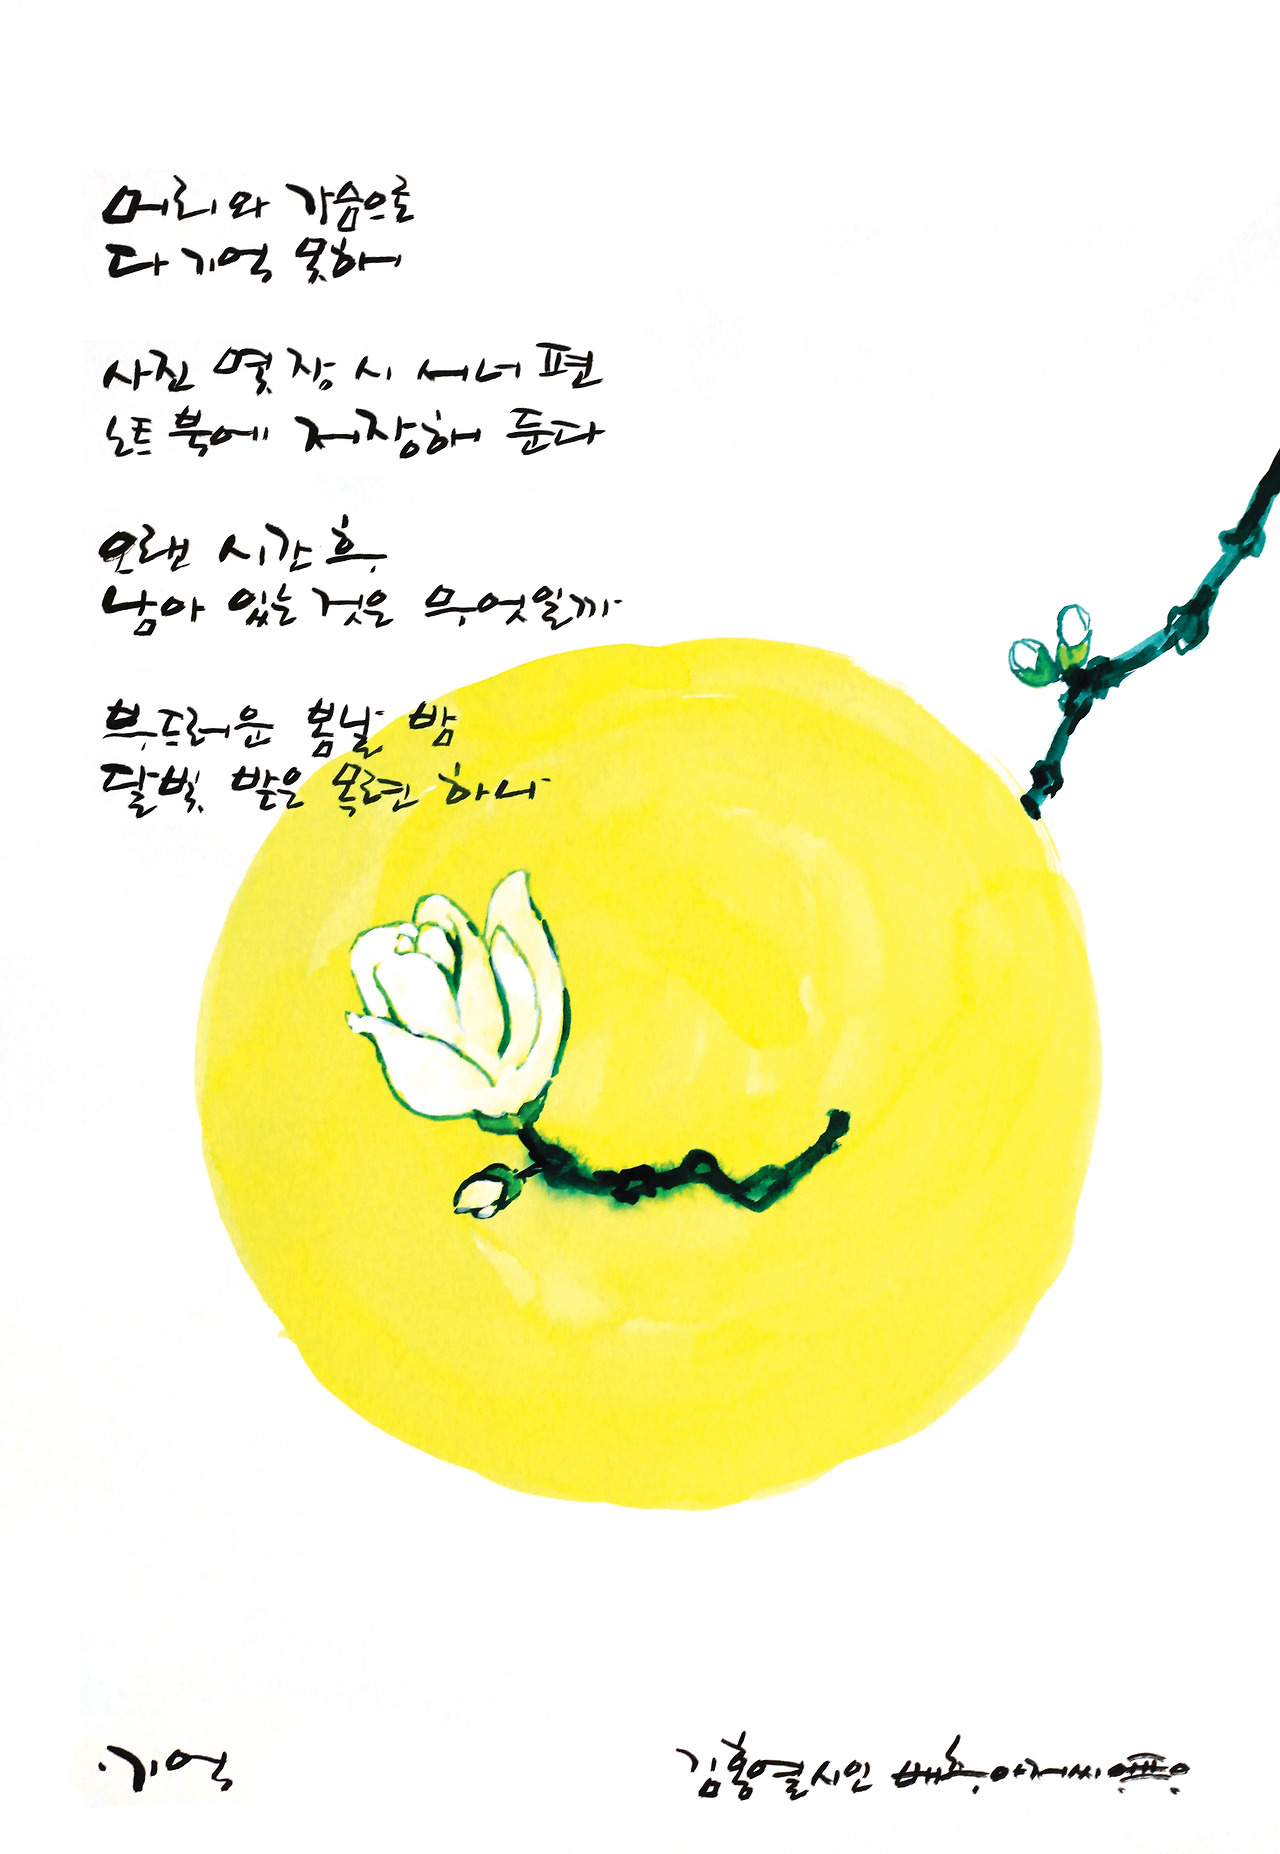 머리와 가슴으로
다 기억 못해
사진 몇 장 시 서너 편
노트북에 저장해 둔다
오랜 시간 후
남아 있는 것은 무엇일까
부드러운 봄날 밤
달빛 받은 목련 하나
·기억
김홍열시인 배추아저씨